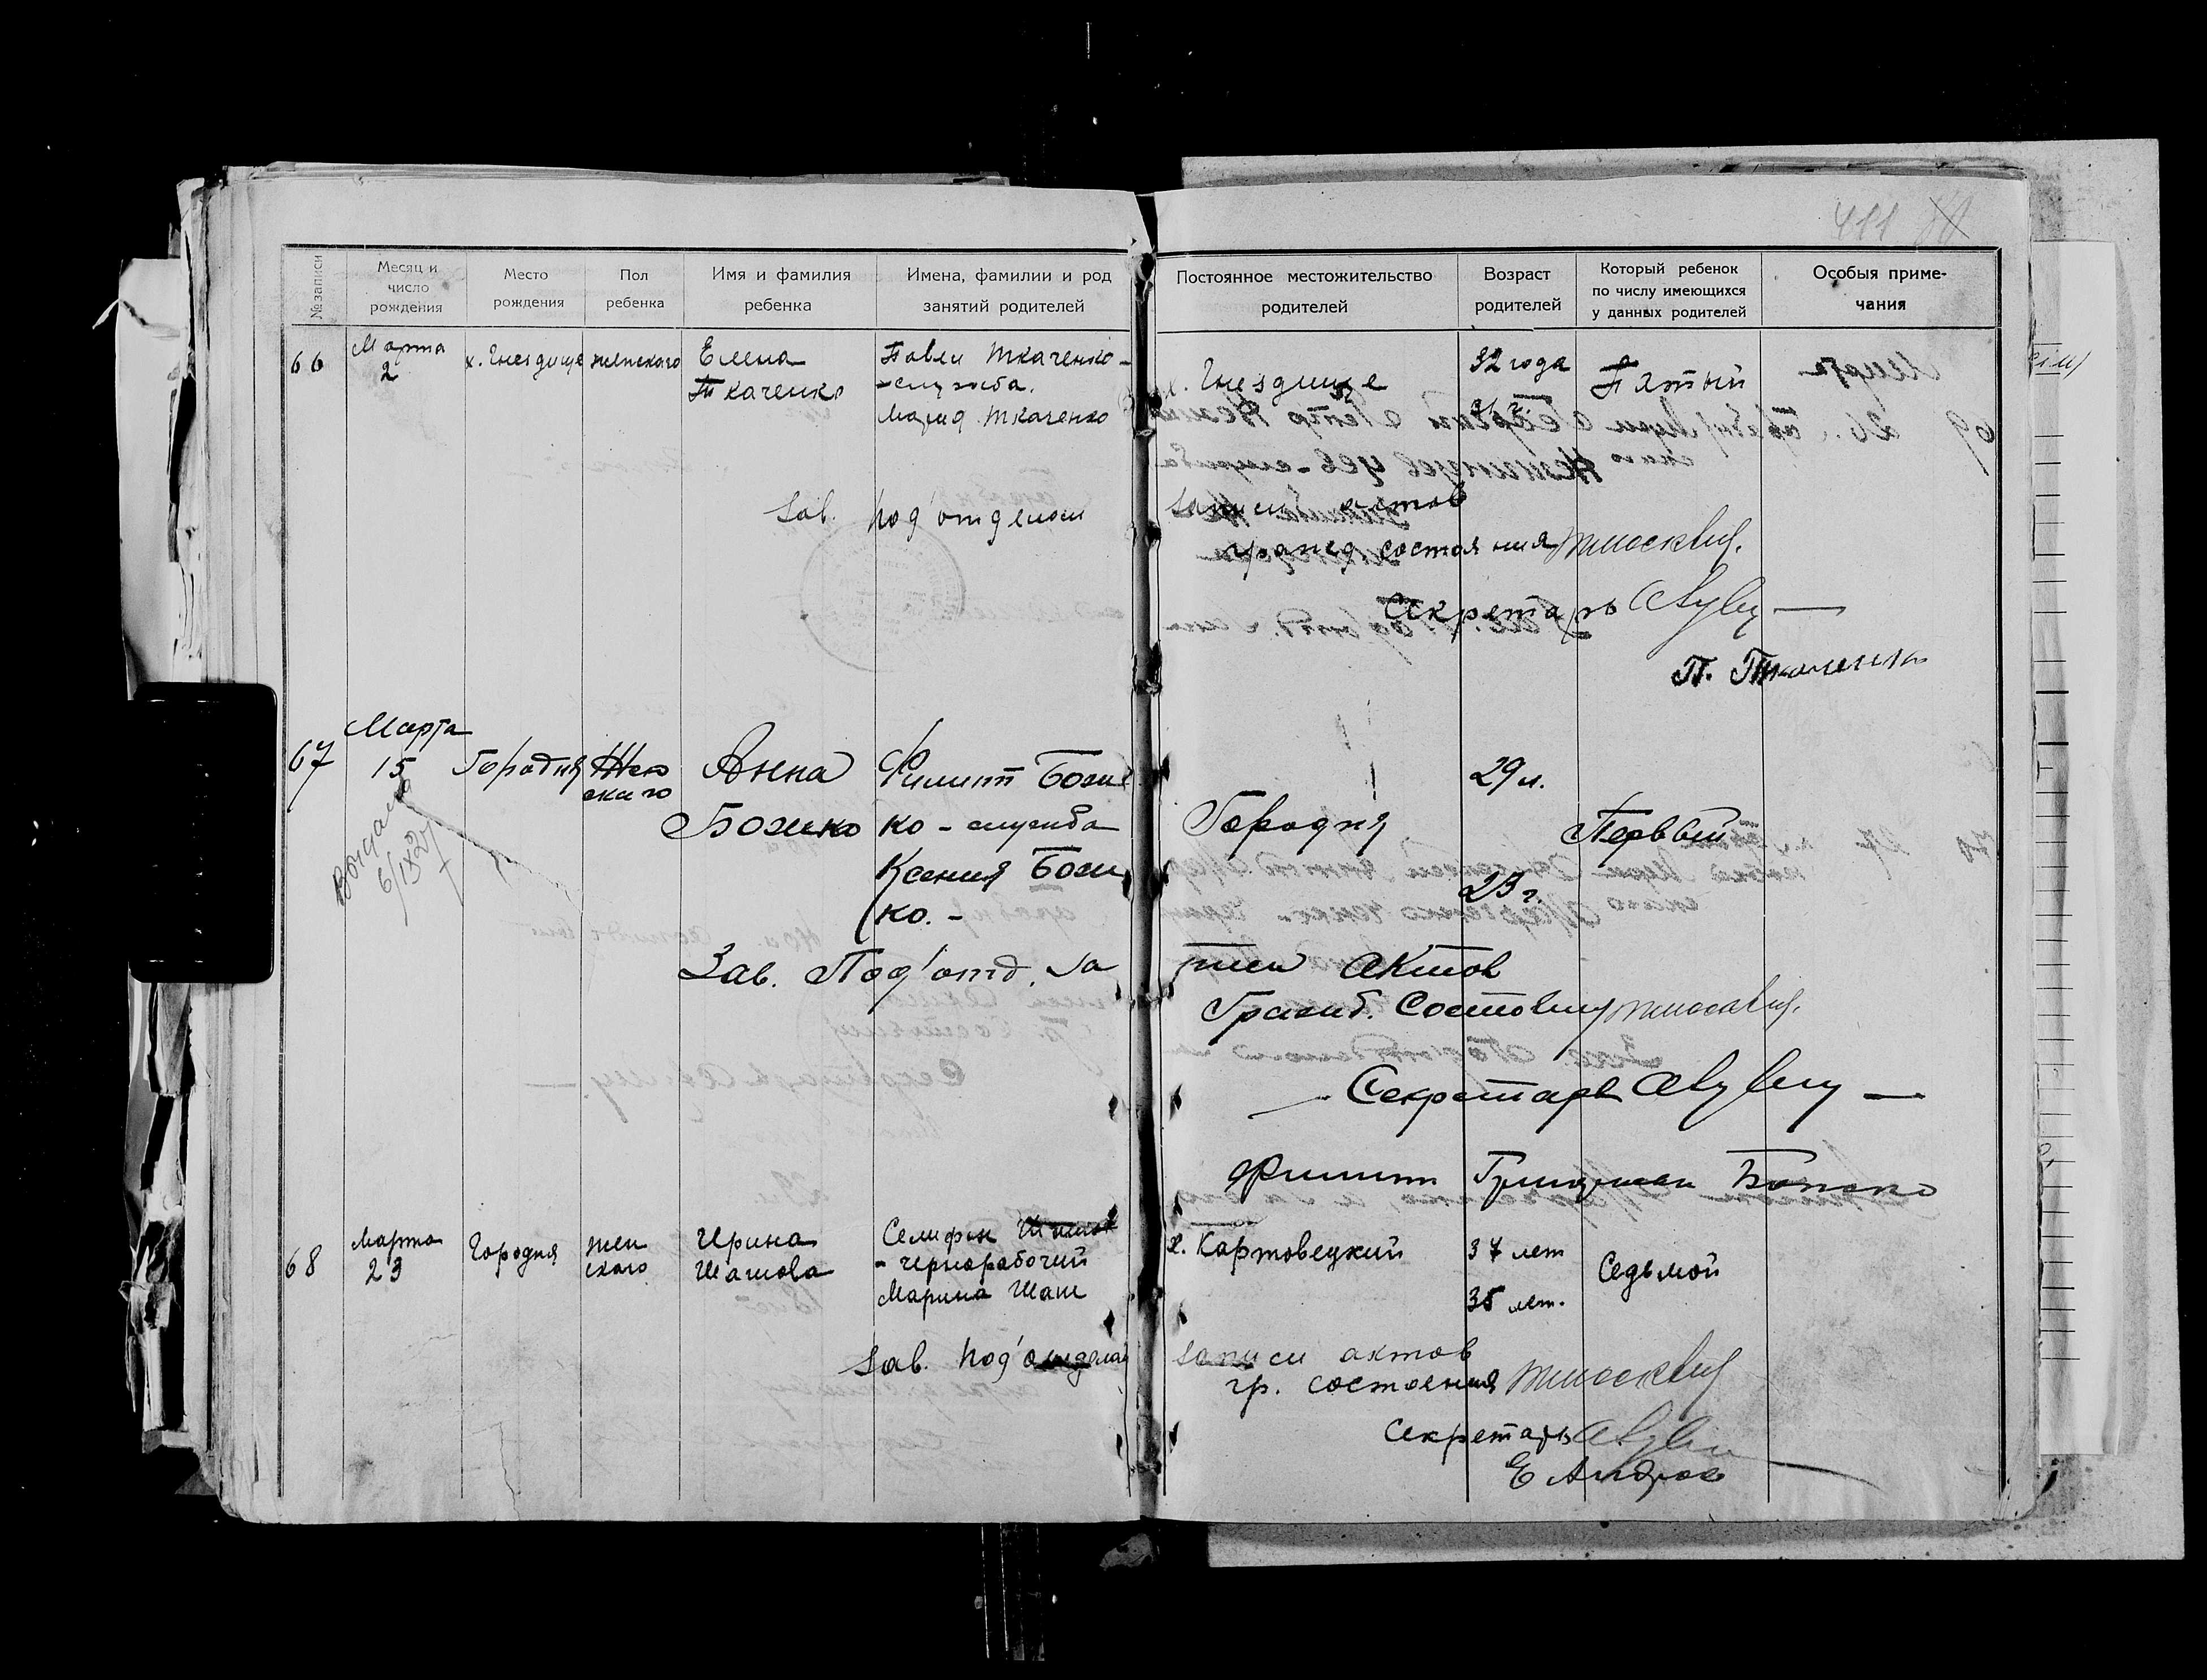 411
№ записи
Месяц и число рождения
Место рождения
Пол ребенка
Имя и фамилия ребенка
Имена, фамилии и род занятий родителей
Постоянное местожительство родителей
Возраст родителей
Который ребенок по числу имеющихся у данных родителей
Особыя приме-
чания
66
Марта
2
х. Гнездище
женского
Елена
Ткаченко
Павел Ткаченко -
- служба.
Мария Ткаченко
х. Гнездище
32 года
31 г.
Пятый
Зав. под'отделом
записи актов
гражд. состояния
Секретарь
П. Ткаченко
67
Марта
15
Выдана
6/IX 27
Городня
Жен
скаго
Анна
Божко
Филипп Бож
ко - служба
Ксения Бож
ко. -
Городня
29 л.
23 г.
Первый
Зав. Под'отд. За
писи Актов
Гражд. Состояния
Секретарь
Филипп Божко
68
Марта
23
Городня
жен
ского
Ирина
Шашова
Селифон
- чернорабочий
Марина Шаш
х. Картовецкий
37 лет
35 лет.
Седьмой
Зав. под'отделом
записи актов
гр. состояния
Секретарь